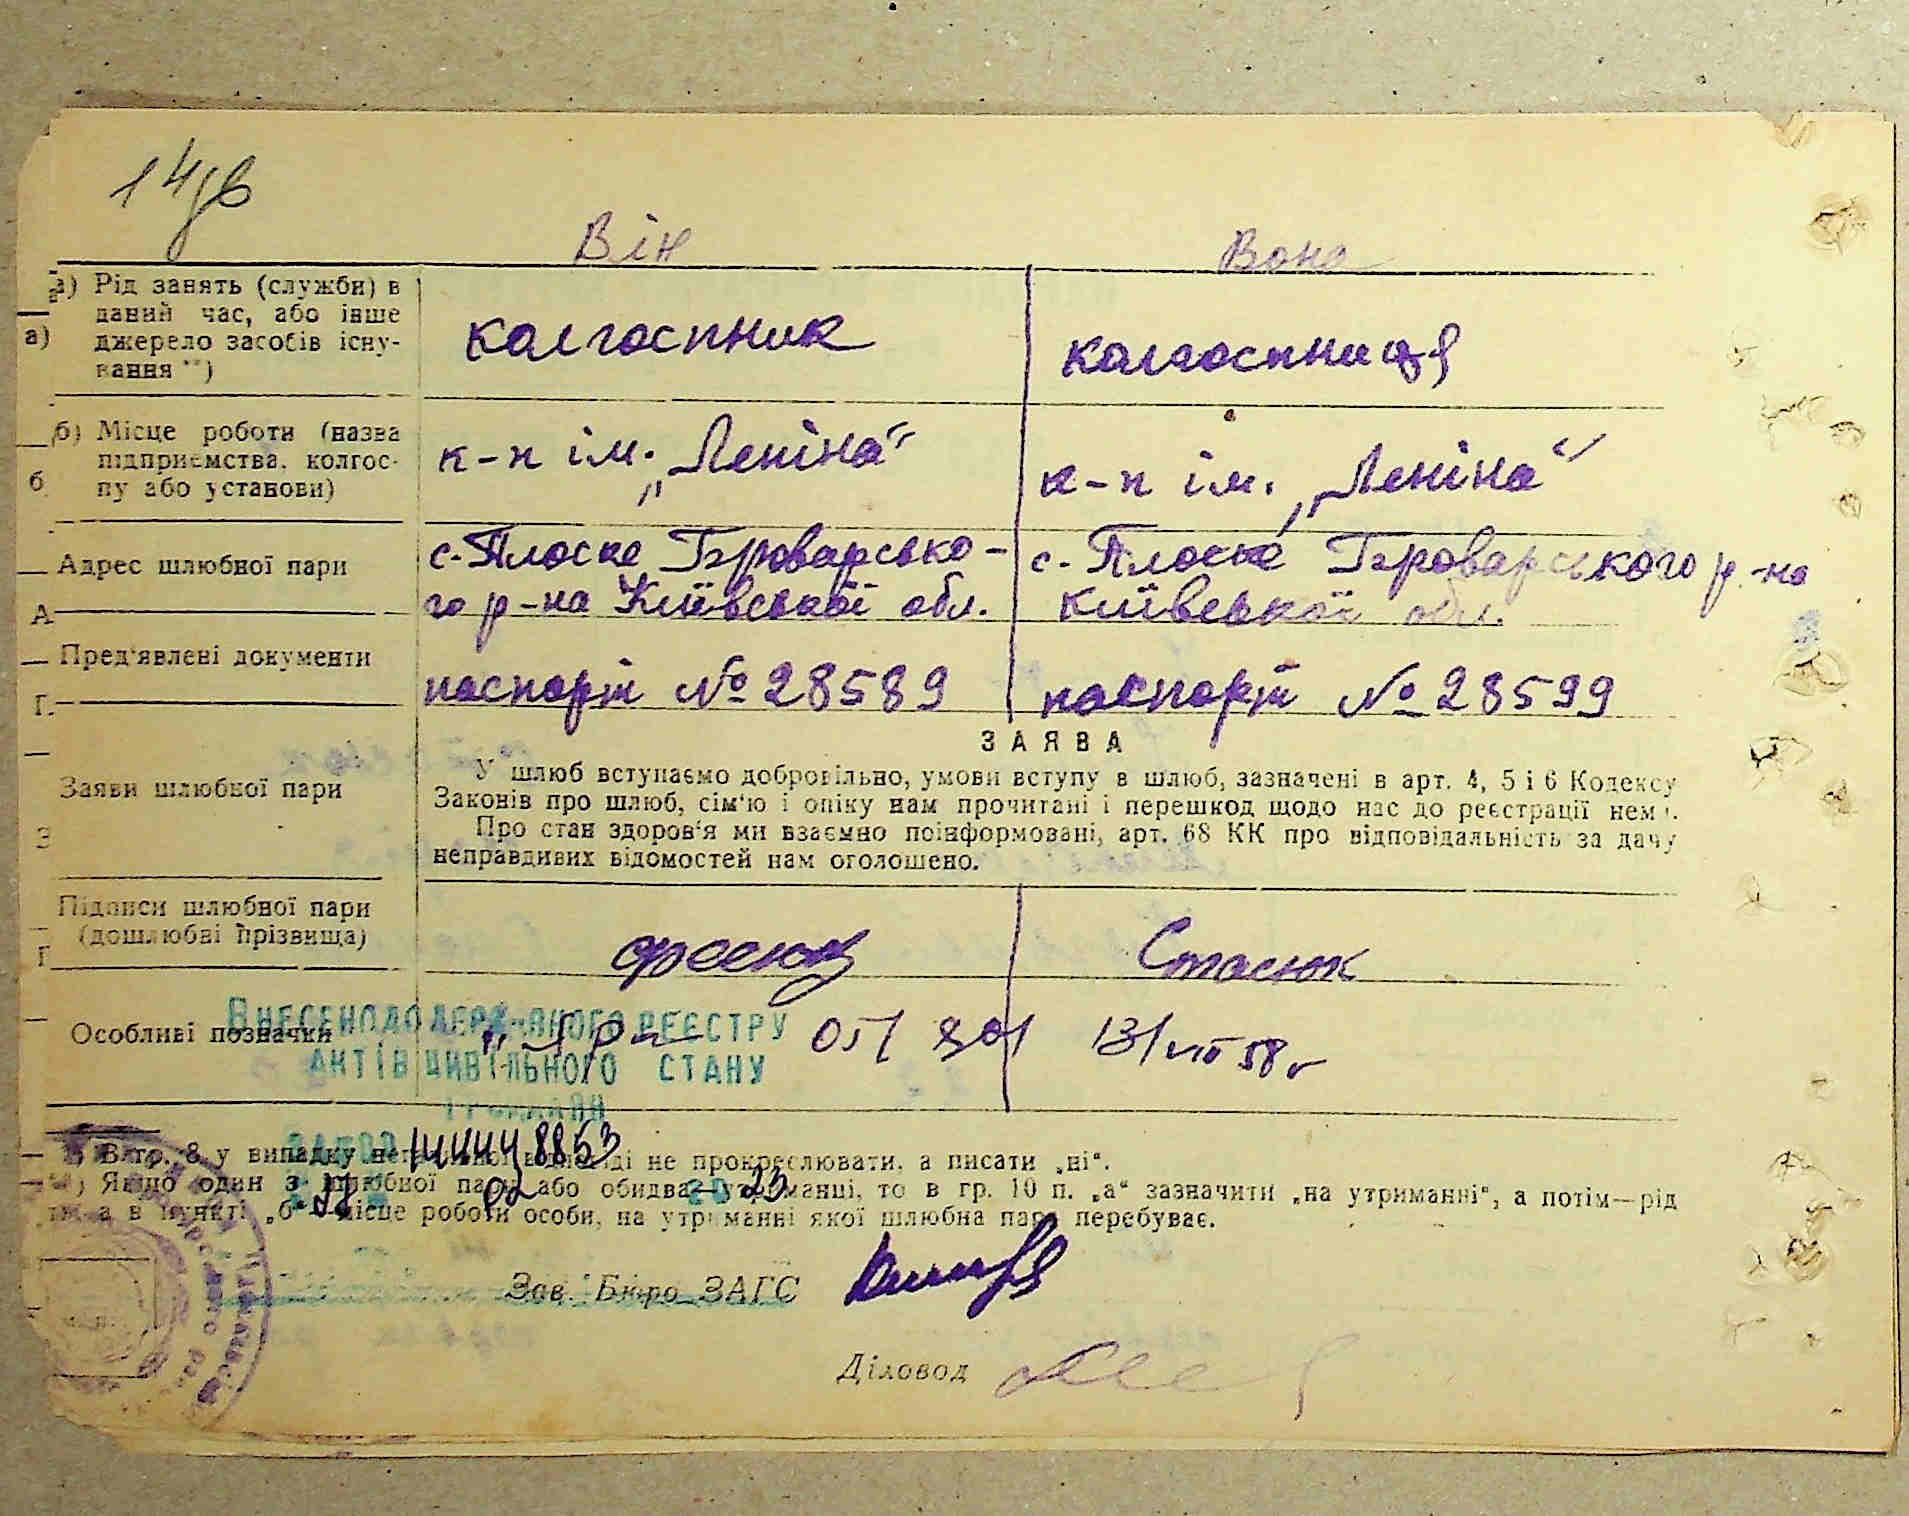 Він Вона
а) Рід занять (служби) в
даний час, або інше
джерело засобів існу-
вання **)
колгоспник колгоспниця
б) Місце роботи (назва
підприємства, колгос-
пу або установи)
к-п ім. „Леніна" к-п ім. „Леніна"
Адрес шлюбної пари
с. Плоске Броварсько-
го р-на Київської обл.
с. Плоске Броварського р-на
Київської обл.
Пред'явлені документи
паспорт № 28589 паспорт № 28599
ЗАЯВА
Заяви шлюбної пари
У шлюб вступаємо добровільно, умови вступу в шлюб, зазначені в арт. 4, 5 і 6 Кодексу
Законів про шлюб, сім'ю і опіку нам прочитані і перешкод щодо нас до реєстрації нема.
Про стан здоров'я ми взаємно поінформовані, арт. 68 КК про відповідальність за дачу
неправдивих відомостей нам оголошено.
Підписи шлюбної пари
(дошлюбні прізвища)
Стасюк
Особливі позначки
ВНЕСЕНО ДО ДЕРЖАВНОГО РЕЄСТРУ
АКТІВ ЦИВІЛЬНОГО СТАНУ
ГРОМАДЯН
13/VIII 58 г
*) В гр. 8 у випадку негативної відповіді не прокреслювати, а писати „ні".
**) Якщо один з шлюбної пари або обидва—утриманці, то в гр. 10 п. „а" зазначити „на утриманні", а потім—рід
а в пункті „б" місце роботи особи, на утриманні якої шлюбна пара перебуває.
Зав. Бюро ЗАГС
Діловод